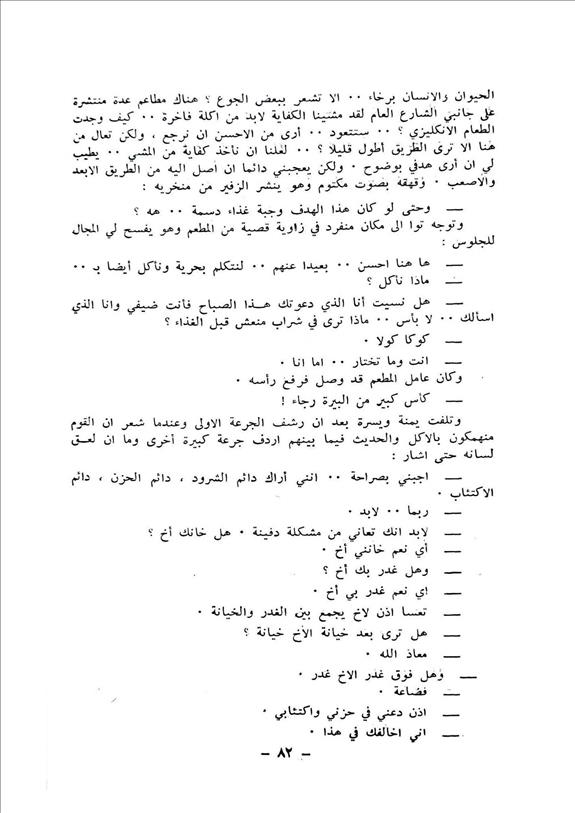 الحيوان والانسان برخاء ٠٠ الا تشعر ببعض الجوع ؟ هناك مطاعم عدة منتشرة
على جانبي الشارع العام لقد مشينا الكفاية لابد من اكلة فاخرة ٠٠ كيف وجدت
الطعام الانكليزي ؟ ٠٠ ستتعود ٠٠ أرى من الاحسن ان نرجع ، ولكن تعال من
هنا الا ترى الطريق أطول قليلا ؟ ٠٠ لعلنا ان نأخذ كفاية من المشي ٠٠ يطيب
لي ان أرى هدفي بوضوح ٠ ولكن يعجبني دائما ان اصل اليه من الطريق الابعد
والاصعب ٠ وقهقه بصوت مكتوم وهو ينشر الزفير من منخريه :
— وحتى لو كان هذا الهدف وجبة غذاء دسمة ٠٠ هه ؟
وتوجه توا الى مكان منفرد في زاوية قصية من المطعم وهو يفسح لي المجال
للجلوس :
— ها هنا احسن ٠٠ بعيدا عنهم ٠٠ لنتكلم بحرية ونأكل أيضا بـ ٠٠
— ماذا نأكل ؟
— هل نسيت أنا الذي دعوتك هــذا الصباح فأنت ضيفي وانا الذي
اسألك ٠٠ لا بأس ٠٠ ماذا ترى في شراب منعش قبل الغذاء ؟
— كوكا كولا ٠
— انت وما تختار ٠٠ اما انا ٠
وكان عامل المطعم قد وصل فرفع رأسه ٠
— كأس كبير من البيرة رجاء !
وتلفت يمنة ويسرة بعد ان رشف الجرعة الاولى وعندما شعر ان القوم
منهمكون بالاكل والحديث فيما بينهم اردف جرعة كبيرة أخرى وما ان لعــق
لسانه حتى اشار :
— اجبني بصراحة ٠٠ انني أراك دائم الشرود ، دائم الحزن ، دائم
الاكتئاب ٠
— ربما ٠٠ لابد ٠
— لابد انك تعاني من مشكلة دفينة ٠ هل خانك أخ ؟
— أي نعم خانني أخ ٠
— وهل غدر بك أخ ؟
— اي نعم غدر بي أخ ٠
— تعسا اذن لاخ يجمع بين الغدر والخيانة ٠
— هل ترى بعد خيانة الأخ خيانة ؟
— معاذ الله ٠
— وهل فوق غدر الاخ غدر ٠
— فضاعة ٠
— اذن دعني في حزني واكتئابي ٠
— اني اخالفك في هذا ٠
– ٨٢ –